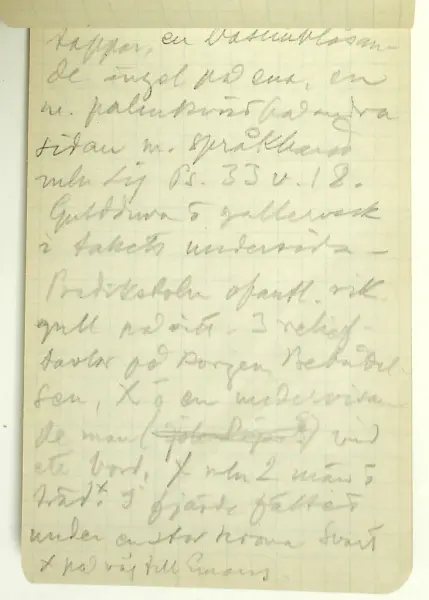 tappar, en basunblåsan-
de ängel på ena, en
m. palmkvist på andra
sidan m. språkband
Ps. 33 v. 18.
Guldduva ö
i takets undersida –
Predikstolen ofantl. rik.
gull på vitt. 3 relief-
tavlor på korgen Bebådel-
sen, X ö en undervisan-
de man ( ) vid
ett bord, X mln 2 män ö
träd. I fjärde fältet
under en stor krona Svart
x på väg till Emaus